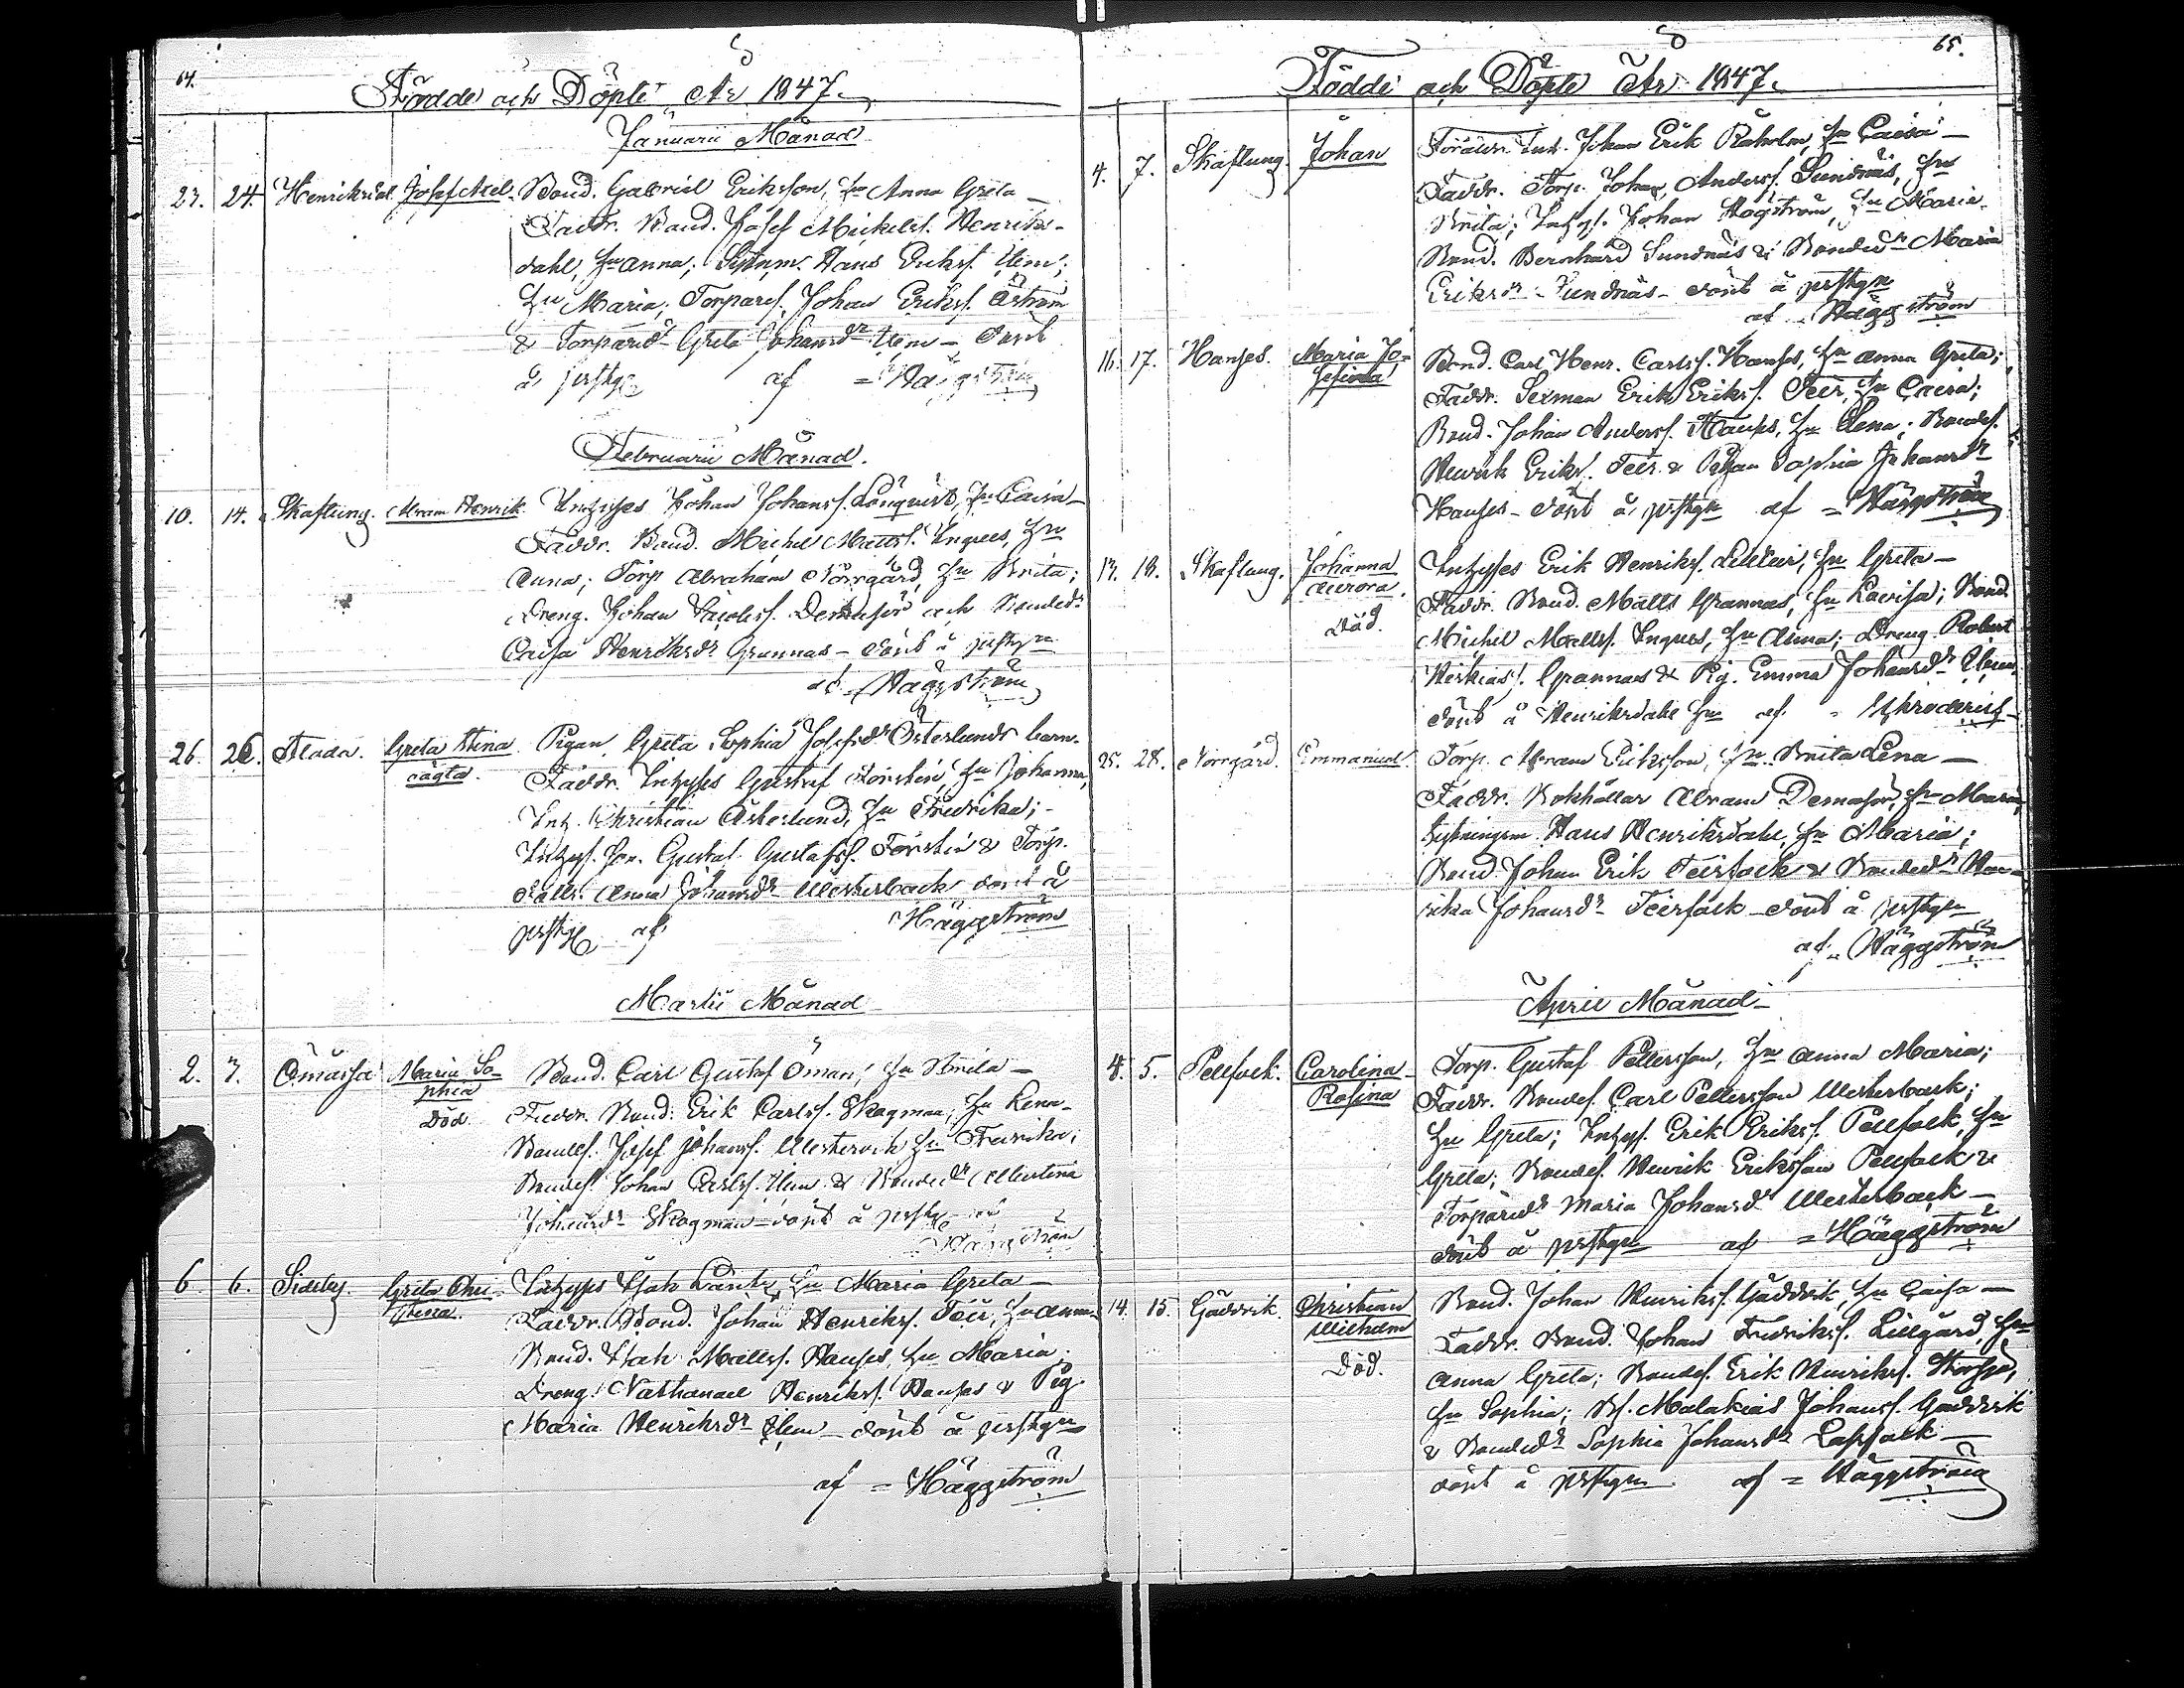 64.
Födde och Döpte År 1847.
Januarii Månad
23. 24. Henriksdal. Josef Axel. Bond. Gabriel Eriksson, hu Anna Greta —
Faddr. Bond. Josef Mickelss. Henriks-
dahl, hu Anna; Hans Erikss. Ibm;
hu Maria; Torpares. Johan Erikss. Åström
& Torparedr Greta Johansdr Ibm — döpt
å prstg af = Häggström
Februarii Månad.
10. 14. Skaftung. Abram Henrik Inhyses Johan Johanss. Lönqvist, hu Caisa —
Faddr. Bond. Michel Matts. Ingves, hu
Anna; Torp Abraham Norrgård, hu Brita;
Dreng. Johan och Bondedr
Caisa Henriksdr Grannas — döpt å prstgn
af Häggström
26. 26. Åbada. Greta Stina Pigan Greta Sophia Josefsdr Österlunds barn.
oägta. Faddr. Inhyses Gustaf hu Johanna,
Inh. Christian Åkerlund, hu Fredrika; -
Inhys. Gustaf Gustafss. & Torp.
Anna Johansdr Westerback döpt å
prstg af Häggström
Martii Månad
2. 7. Ömossa Maria So- Bond. Carl Gustaf Öman, hu Brita —
phia Faddr. Bond. Erik Carlss. Skogman, hu Lena-
Död. Bondes. Josef Johanss. Westervik hu Fredrika;
Bondes. Johan Carlss. Ibm & Bondedr Albertina
Johansdr Skogman — döpt å prstg af
Häggström
6. 6. Sideby. Greta Chri- Inhyses Isak hu Maria Greta —
stina. Faddr. Bond. Johan Henrikss. Teir, hu Anna
Bond. Isak Mattss. Hanses, hu Maria;
Dreng. Nathanael Henrikss. Hanses & Pig.
Maria Henriksdr Ibm — döpt å prstgn
af = Häggström
65.
Födde och Döpte År 1847.
4. 7. Skaftung. Johan Johan Erik hu Caisa —
Faddr. Torp. Johan Anderss. Sundnäs, hu
Brita; Inhys. Johan Högström, hu Maria.
Bond. Bernhard Sundnäs & Bondedr Maria
Eriksdr Sundnäs — döpt å prstgn
af Häggström
16. 17. Hanses. Maria Jo- Bond. Carl Henr. Carlss. Hanses, hu Anna Greta;
sefina Faddr. Sexman Erik Erikss. Teir, hu Caisa;
Bond. Johan Anderss. Hanses, hu Lena; Bondes.
Henrik Erikss. Teir & Pigan Sophia Johansdr
Hanses — döpt å prstgn af = Häggström
13. 18. Skaftung. Johanna Inhyses Erik Henrikss. Lillteir, hu Greta —
Aurora. Faddr. Bond. Matts Grannas, hu Lovisa; Bond.
Död. Michel Mattss. Ingves, hu Anna; Dreng. Robert
Grannas & Pig. Emma Johansdr Ibm.
döpt å Henriksdahl af = Schroderus
25. 28. Norrgård. Emmanuel. Torp. Abram Eriksson, hu Brita Lena —
Faddr. Bokhållar Abram hu Maria,
Hans Henriksdahl, hu Maria;
Bond. Johan Erik Teirfolk & Bondedr Hen-
rika Johansdr Teirfolk — döpt å prstgn
af = Häggström
April Månad —
4. 5. Pellfolk. Carolina Torp. Gustaf Pettersson, hu Anna Maria;
Rosina Faddr. Bondes. Carl Pettersson Westerback;
hu Greta; Inhys. Erik Erikss. Pellfolk, hu
Greta; Bondes. Henrik Eriksson Pellfolk &
Torparedr Maria Johansdr Westerback —
döpt å prstgn af = Häggström
14. 15. Gäddvik. Christian Bond. Johan Henrikss. Gäddvik, hu Caisa —
Wilhelm Faddr. Bond. Johan Fredrikss. Lillgård, hu
Död. Anna Greta; Bondes. Erik Henrikss.
hu Sophia; Bs. Malakias Johanss. Gäddvik
& Bondedr Sophia Johansdr Lappfolk —
döpt å prstgn af = Häggström